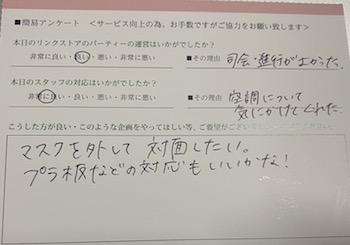 ■簡易アンケート <サービス向上の為、お手数ですがご協力をお願い致します>
本日のリンクストアのパーティーの運営はいかがでしたか?
非常に良い・良い・悪い・非常に悪い ■その理由 司会・進行がよかった。
本日のスタッフの対応はいかがでしたか?
非常に良い・良い・悪い・非常に悪い ■その理由 空調について
気にかけてくれた。
こうした方が良い・このような企画をやってほしい等、ご要望がござい
マスクを外して 対面したい。
プラ板などの対応もいいかな!